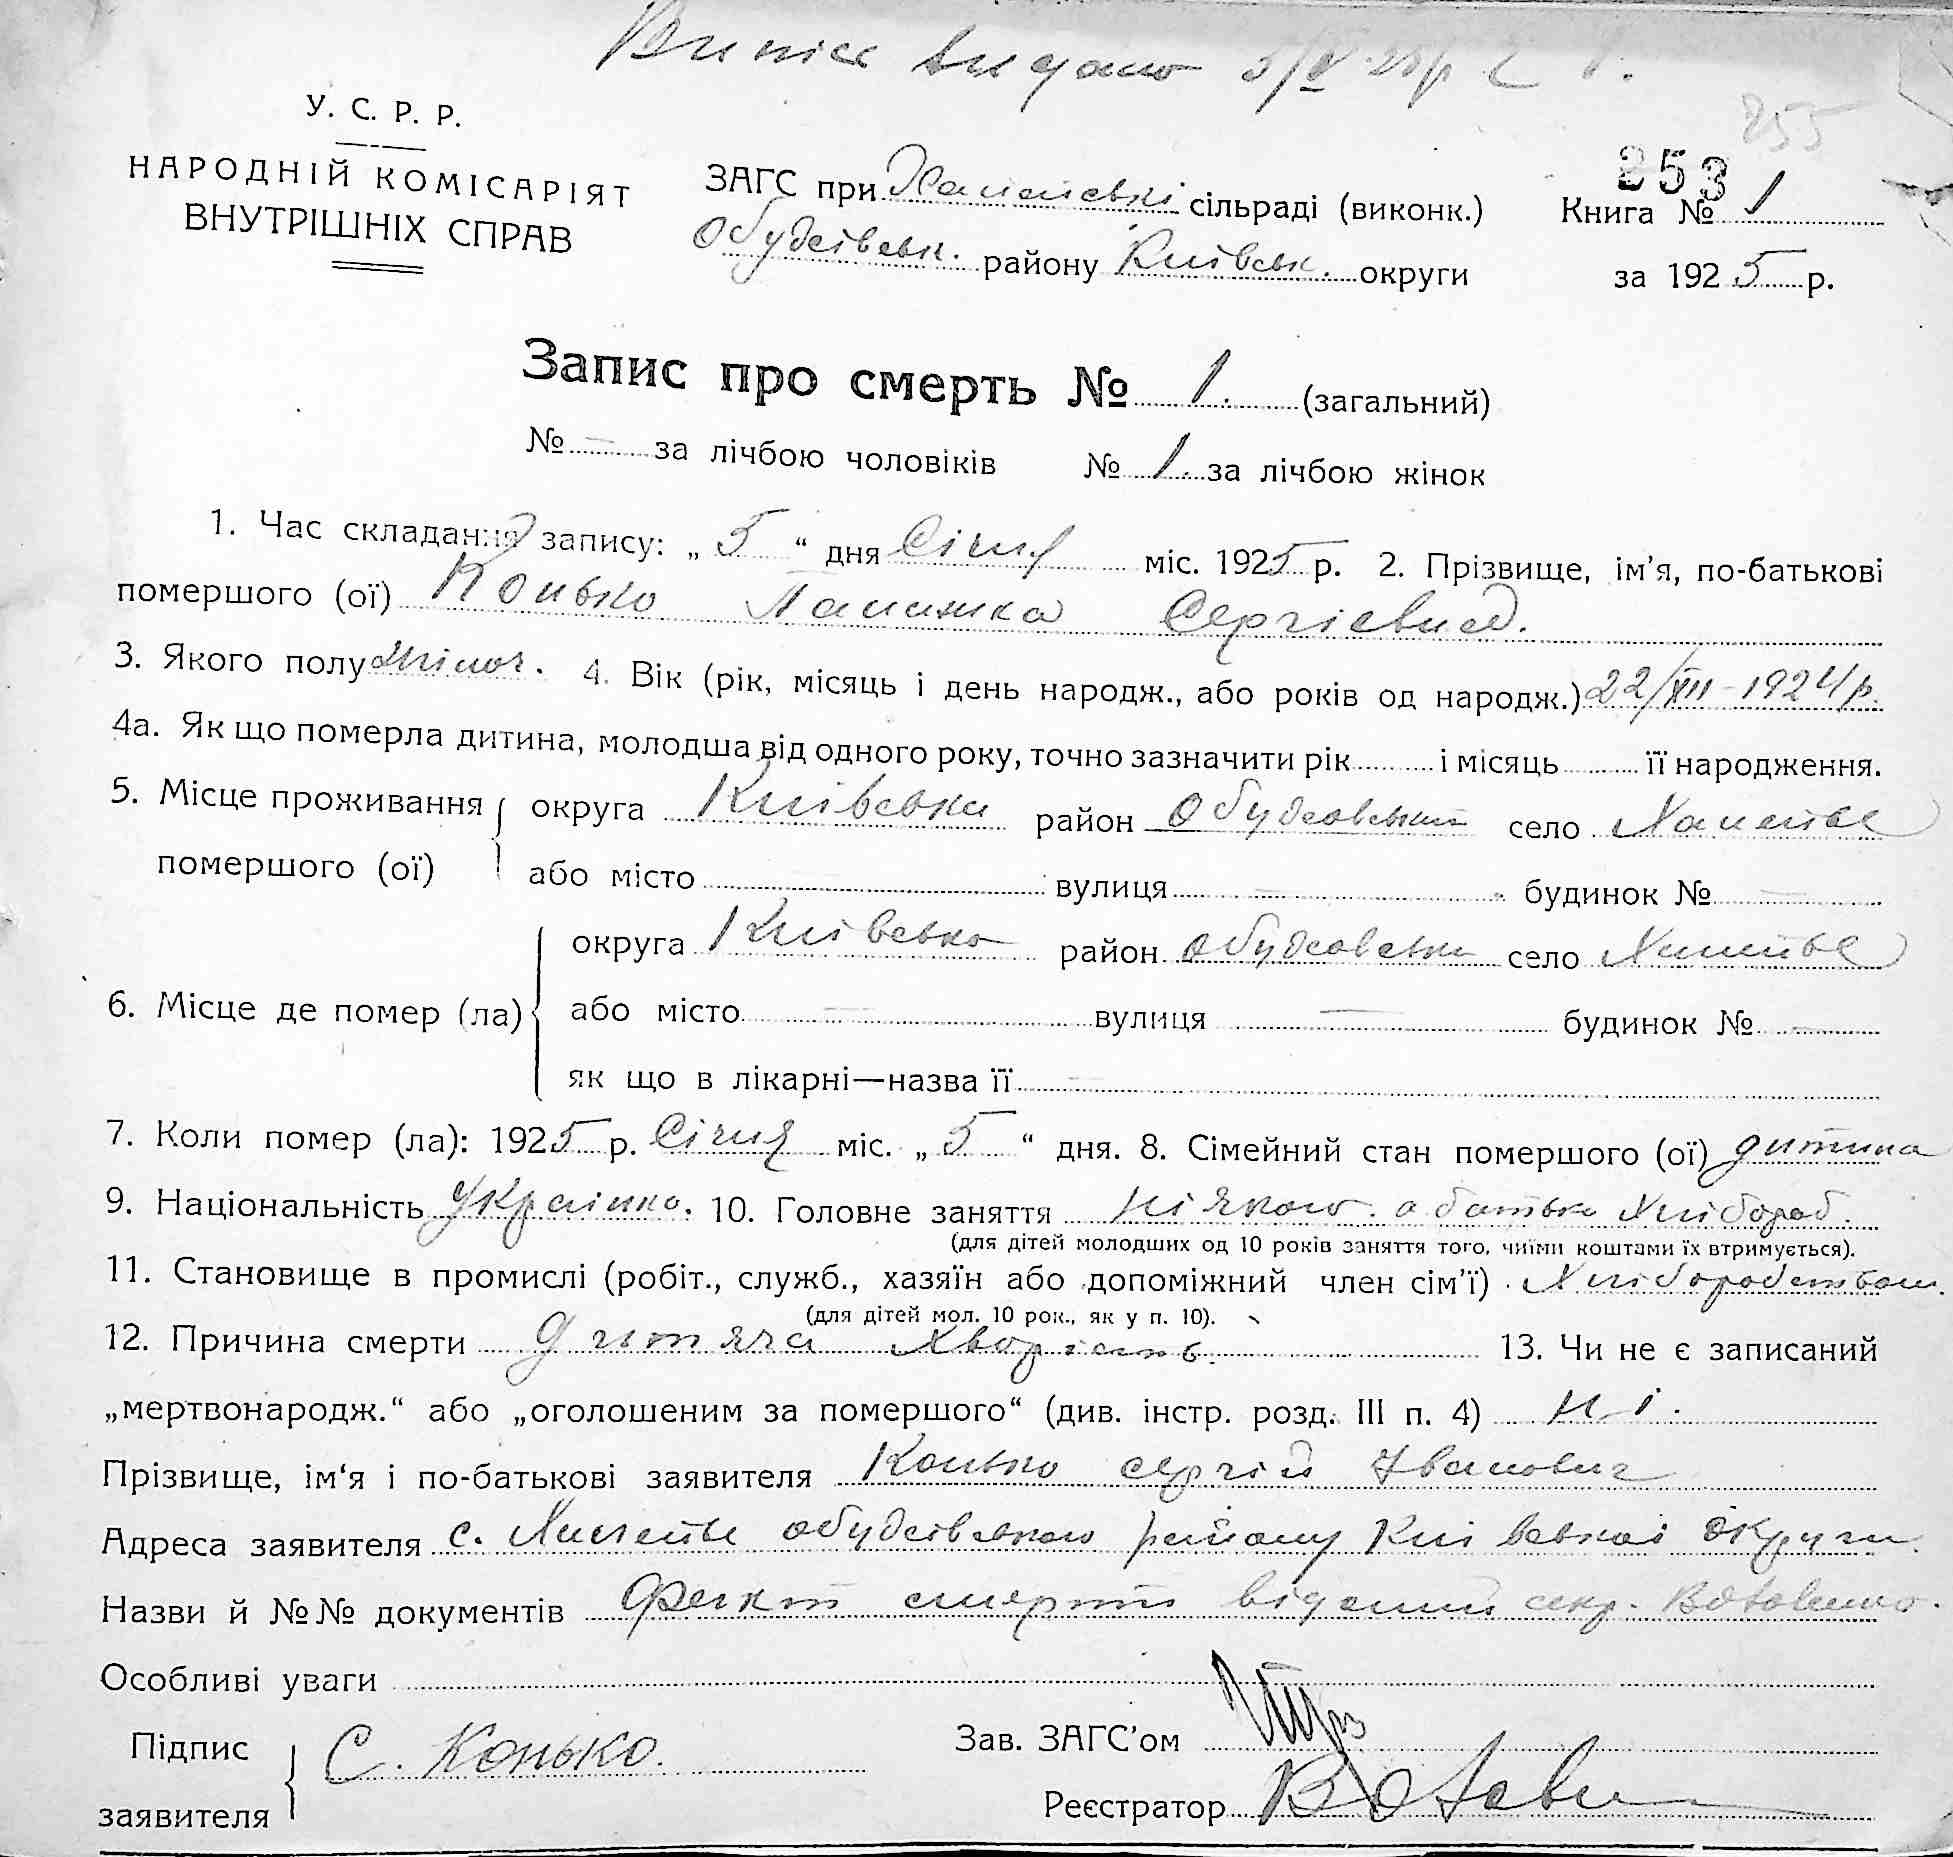 Випис видано 5/V 25 р.
У. С. Р. Р.
255
НАРОДНІЙ КОМІСАРІЯТ
ВНУТРІШНІХ СПРАВ
ЗАГС при сільраді (виконк.)
353
Книга № 1
району Київськ. округи
за 1925 р.
Запис про смерть № 1. (загальний)
№ — за лічбою чоловіків № 1. за лічбою жінок
1. Час складання запису: „ 5 “ дня Січня міс. 1925 р. 2. Прізвище, ім’я, по-батькові
помершого (ої) Конько Сергієвна.
3. Якого полу жіноч. 4. Вік (рік, місяць і день народж., або років од народж.) 22/XII – 1924 р.
4а. Як що померла дитина, молодша від одного року, точно зазначити рік і місяць її народження.
5. Місце проживання округа Київська район село
помершого (ої) або місто вулиця — будинок № —
округа Київська район село
6. Місце де помер (ла) або місто — вулиця — будинок № —
як що в лікарні—назва її —
7. Коли помер (ла): 1925 р. Січня міс. „ 5 “ дня. 8. Сімейний стан помершого (ої) дитина
9. Національність Українка. 10. Головне заняття ніякого. а батько Хлібороб.
(для дітей молодших од 10 років заняття того, чиїми коштами їх втримується).
11. Становище в промислі (робіт., служб., хазяїн або допоміжний член сім’ї)
(для дітей мол. 10 рок., як у п. 10).
12. Причина смерти Дитяча хворість. 13. Чи не є записаний
„мертвонародж.“ або „оголошеним за помершого“ (див. інстр. розд. III п. 4) ні.
Прізвище, ім‘я і по-батькові заявителя Конько Сергій Іванович
Адреса заявителя с. району Київської округи.
Назви й №№ документів Факт смерти виданий секр.
Особливі уваги
Підпис
заявителя С. Конько.
Зав. ЗАГС’ом
Реєстратор